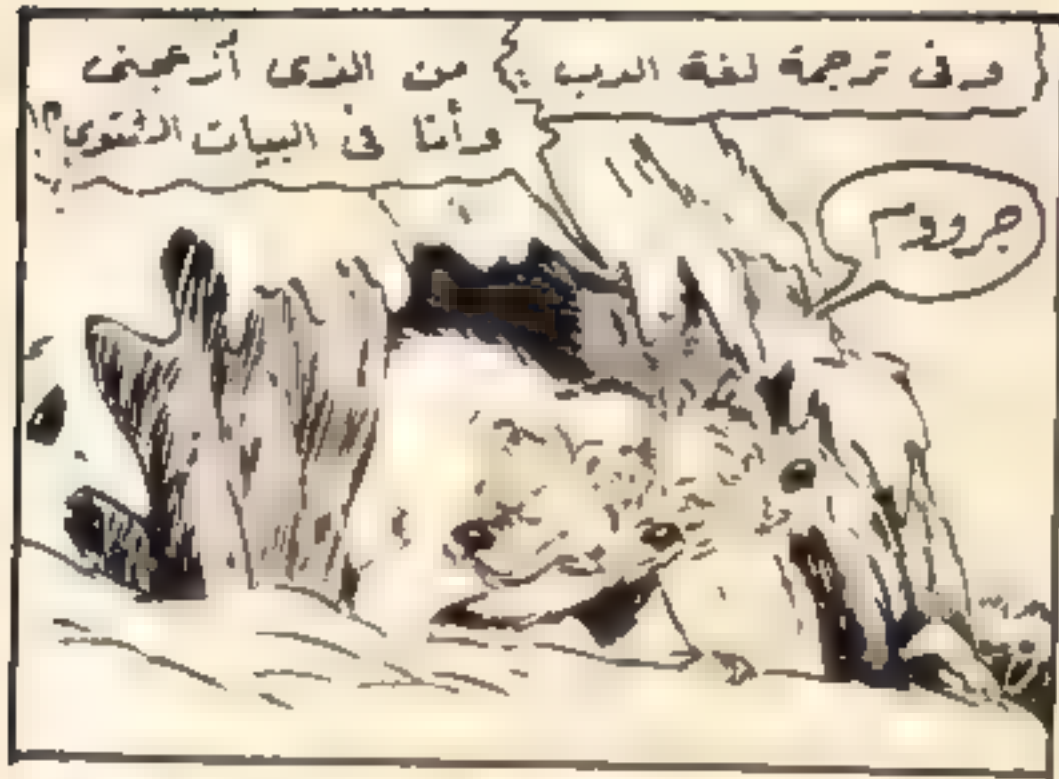 جرووم
وفى ترجمة لغة الدب :
من الذى أزعجنى
وأنا فى البيات الشتوى ؟!